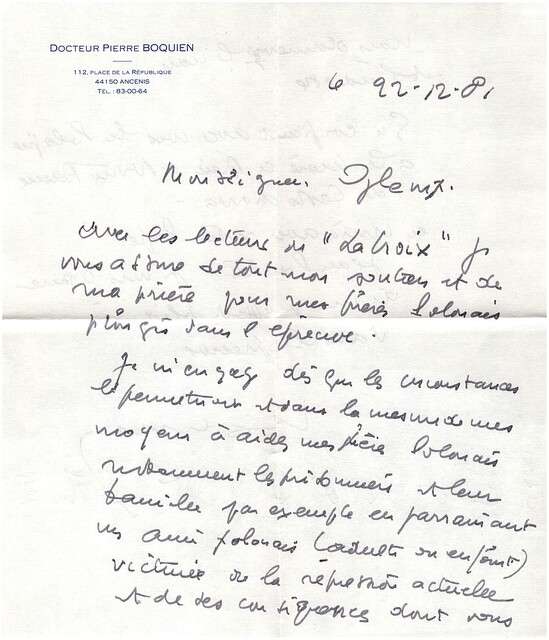 DOCTEUR PIERRE BOQUIEN
112, PLACE DE LA RÉPUBLIQUE
44150 ANCENIS
TÉL. : 83-00-64
le 22-12-81
Monseigneur Glemp.
Avec les lecteurs de "La Croix" je
vous assure de tout mon soutien et de
ma prière pour mes frères Polonais
plongés dans l'épreuve.
Je m'engage dès que les circonstances
le permettront et dans la mesure de mes
moyens à aider mes frères Polonais
notamment les prisonniers et leur
famille par exemple en parrainant
un ami polonais (adulte ou enfant)
victime de la répression actuelle
et de ses conséquences dont vous